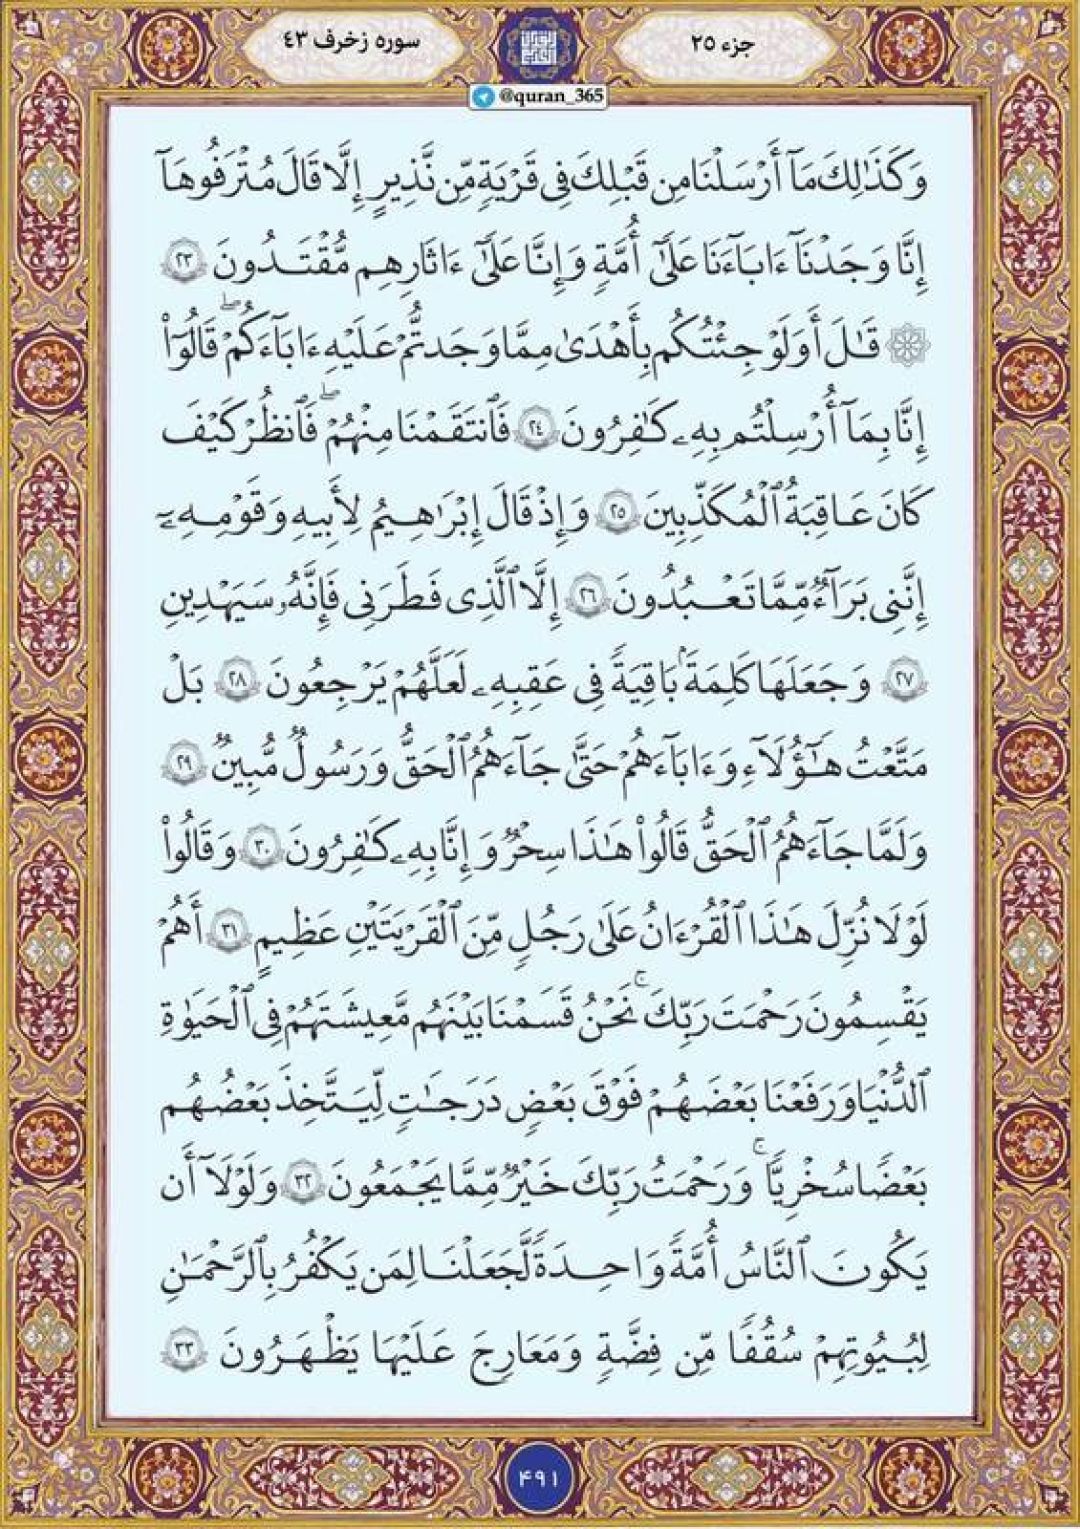 جزء ۲۵
سوره زخرف ۴۳
@quran_365
وَكَذَٰلِكَ مَآ أَرْسَلْنَا مِن قَبْلِكَ فِى قَرْيَةٍ مِّن نَّذِيرٍ إِلَّا قَالَ مُتْرَفُوهَآ
إِنَّا وَجَدْنَآ ءَابَآءَنَا عَلَىٰٓ أُمَّةٍ وَإِنَّا عَلَىٰٓ ءَاثَارِهِم مُّقْتَدُونَ ۲۳
۞ قَٰلَ أَوَلَوْ جِئْتُكُم بِأَهْدَىٰ مِمَّا وَجَدتُّمْ عَلَيْهِ ءَابَآءَكُمْ ۖ قَالُوٓا۟
إِنَّا بِمَآ أُرْسِلْتُم بِهِۦ كَٰفِرُونَ ۲٤ فَٱنتَقَمْنَا مِنْهُمْ ۖ فَٱنظُرْ كَيْفَ
كَانَ عَاقِبَةُ ٱلْمُكَذِّبِينَ ۲٥ وَإِذْ قَالَ إِبْرَٰهِيمُ لِأَبِيهِ وَقَوْمِهِۦٓ
إِنَّنِى بَرَآءٌ مِّمَّا تَعْبُدُونَ ۲٦ إِلَّا ٱلَّذِى فَطَرَنِى فَإِنَّهُۥ سَيَهْدِينِ
۲۷ وَجَعَلَهَا كَلِمَةًۢ بَاقِيَةً فِى عَقِبِهِۦ لَعَلَّهُمْ يَرْجِعُونَ ۲۸ بَلْ
مَتَّعْتُ هَٰٓؤُلَآءِ وَءَابَآءَهُمْ حَتَّىٰ جَآءَهُمُ ٱلْحَقُّ وَرَسُولٌ مُّبِينٌ ۲۹
وَلَمَّا جَآءَهُمُ ٱلْحَقُّ قَالُوا۟ هَٰذَا سِحْرٌ وَإِنَّا بِهِۦ كَٰفِرُونَ ۳۰ وَقَالُوا۟
لَوْلَا نُزِّلَ هَٰذَا ٱلْقُرْءَانُ عَلَىٰ رَجُلٍ مِّنَ ٱلْقَرْيَتَيْنِ عَظِيمٍ ۳۱ أَهُمْ
يَقْسِمُونَ رَحْمَتَ رَبِّكَ ۚ نَحْنُ قَسَمْنَا بَيْنَهُم مَّعِيشَتَهُمْ فِى ٱلْحَيَوٰةِ
ٱلدُّنْيَا وَرَفَعْنَا بَعْضَهُمْ فَوْقَ بَعْضٍ دَرَجَٰتٍ لِّيَتَّخِذَ بَعْضُهُم
بَعْضًا سُخْرِيًّا ۗ وَرَحْمَتُ رَبِّكَ خَيْرٌ مِّمَّا يَجْمَعُونَ ۳۲ وَلَوْلَآ أَن
يَكُونَ ٱلنَّاسُ أُمَّةً وَٰحِدَةً لَّجَعَلْنَا لِمَن يَكْفُرُ بِٱلرَّحْمَٰنِ
لِبُيُوتِهِمْ سُقُفًا مِّن فِضَّةٍ وَمَعَارِجَ عَلَيْهَا يَظْهَرُونَ ۳۳
۴۹۱